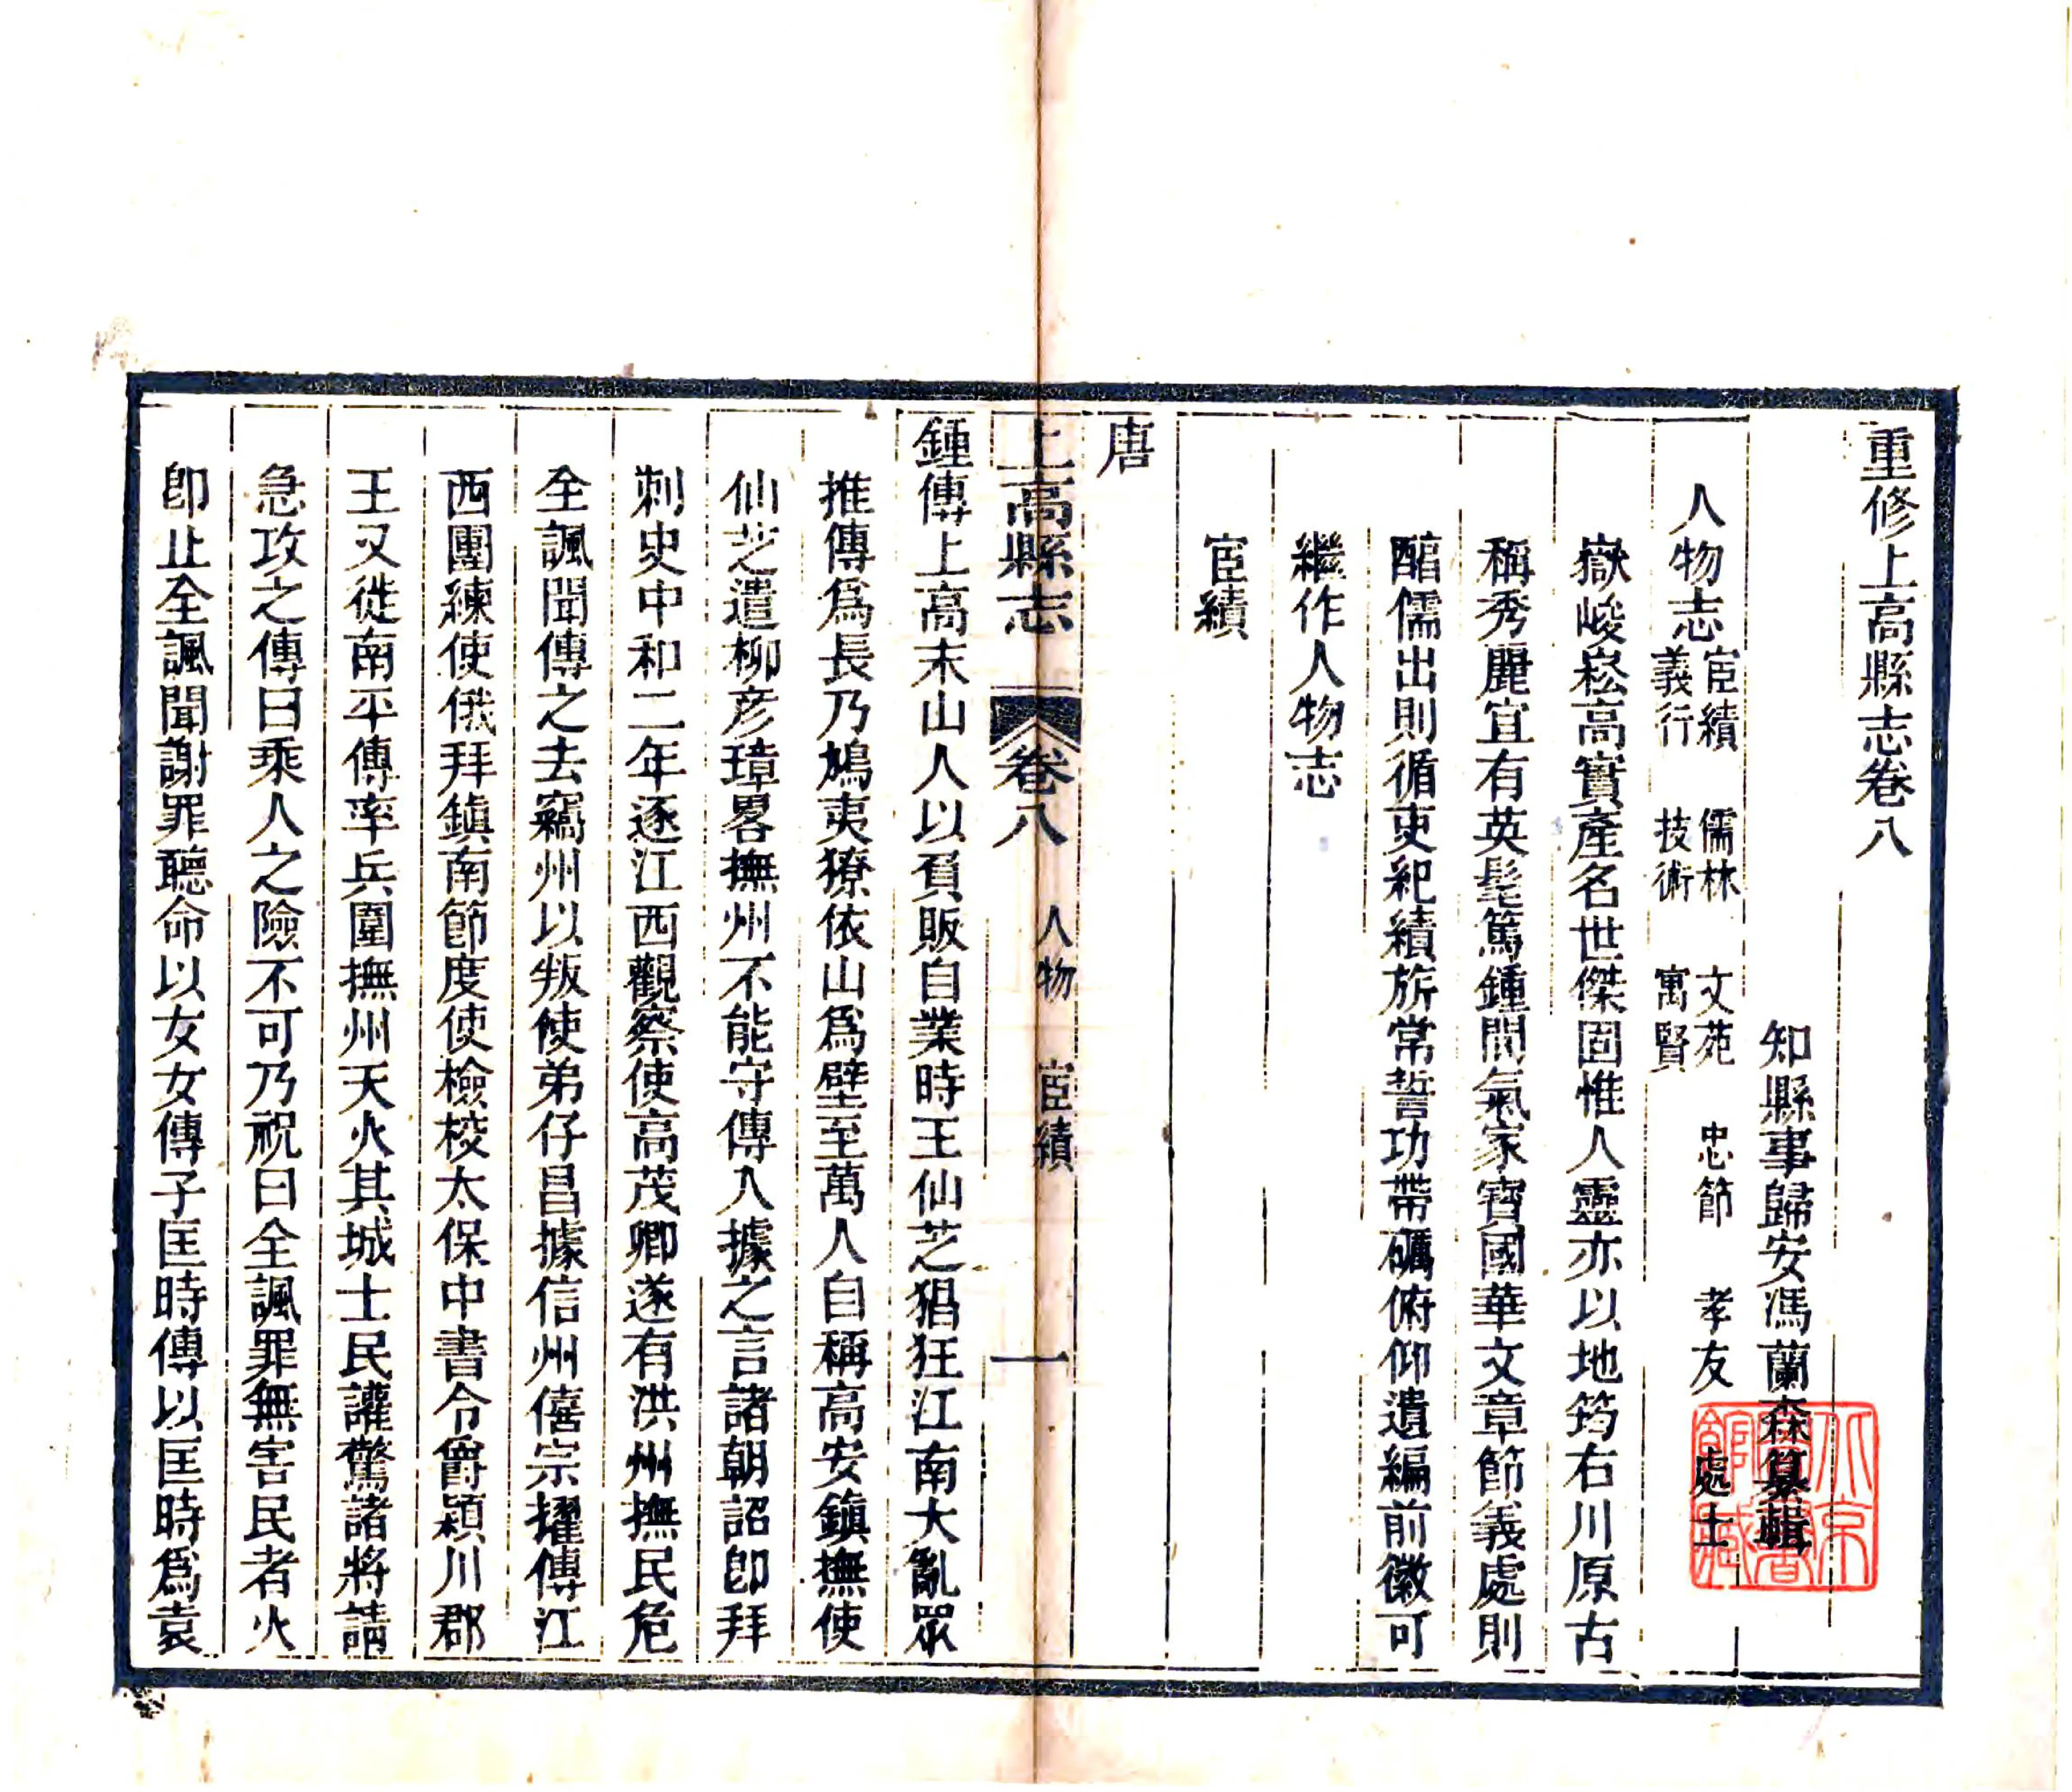 重修上高縣志卷八
知縣事歸安馮蘭森纂輯
人物志宦績 儒林 文苑 忠節 孝友 處士
義行 技術 寓賢
嶽峻崧高實產名世傑固惟人靈亦以地筠右川原古
稱秀麗宜有英髦篤鍾間氣家寶國華文章節義處則
醕儒出則循吏紀績旂常誓功帶礪俯仰遺編前徽可
繼作人物志
宦績
唐
上高縣志 卷八 人物 宦績 一
鍾傳上高末山人以負販自業時王仙芝猖狂江南大亂眾
推傳爲長乃鳩夷獠依山爲壁至萬人自稱高安鎮撫使
仙芝遣柳彦璋畧撫州不能守傳入據之言諸朝詔卽拜
刺史中和二年逐江西觀察使高茂卿遂有洪州撫民危
全諷聞傳之去竊州以叛使弟仔昌據信州僖宗擢傳江
西團練使俄拜鎮南節度使檢校太保中書令爵潁川郡
王又徙南平傳率兵圍撫州天火其城士民讙驚諸將請
急攻之傳曰乘人之險不可乃祝曰全諷罪無害民者火
卽止全諷聞謝罪聽命以女女傳子匡時傳以匡時爲袁
北京圖書館藏